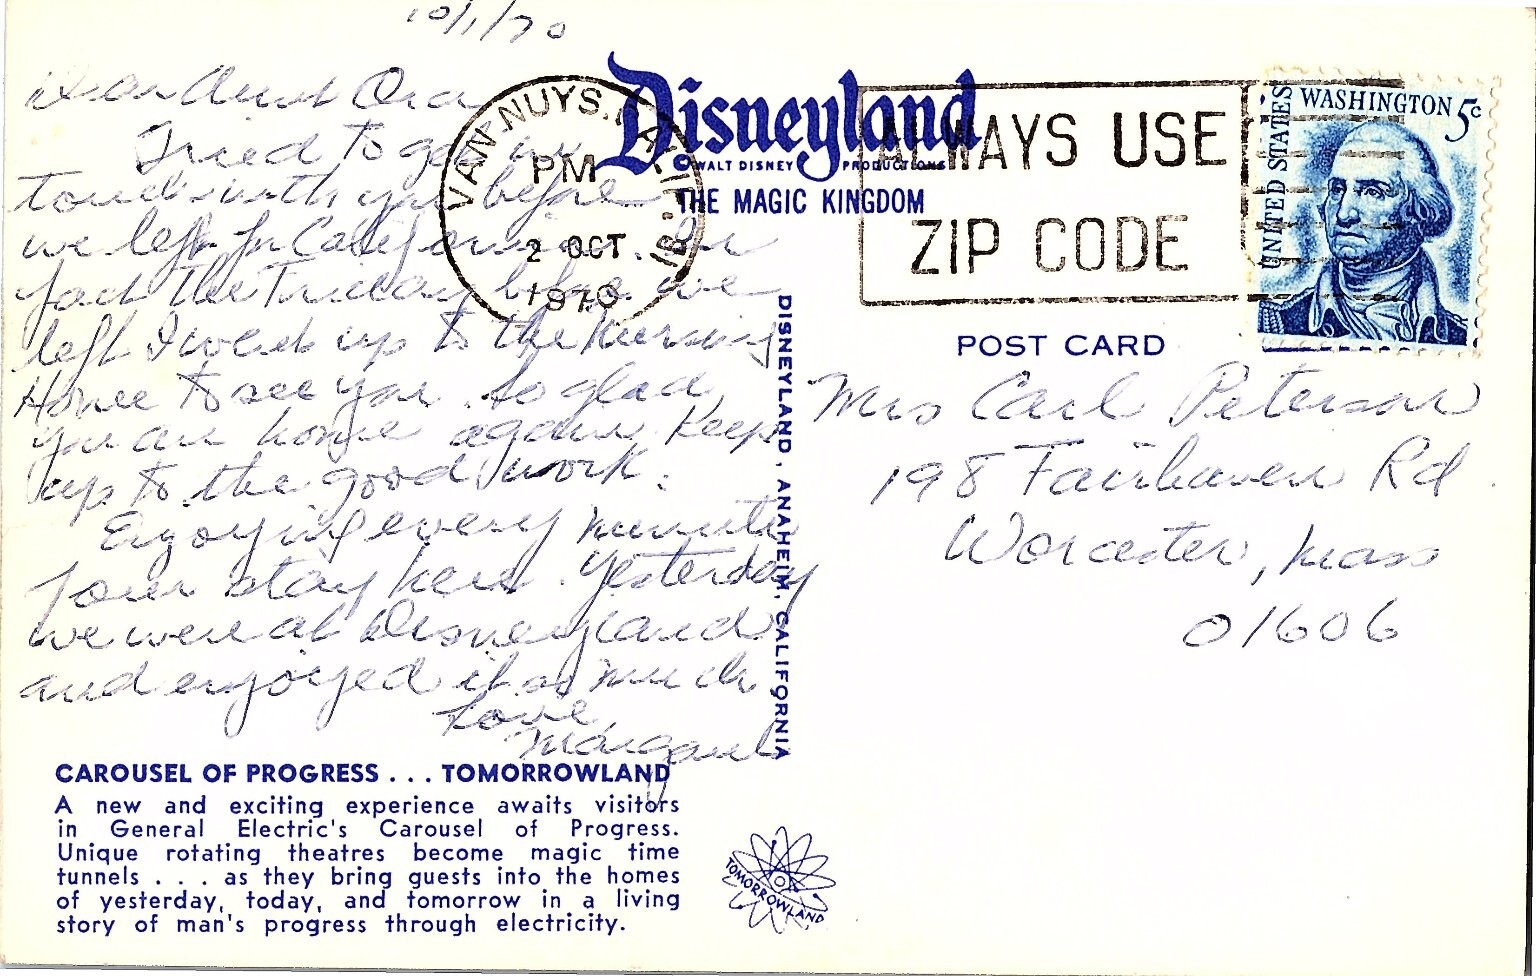 10/1/70
Dear Aunt Ora
Tried to get in
touch with you before
we left for California. In
fact the Friday before we
left I went up to the Nursing
Home to see you. So glad
you are home again. Keep
up to the good work.
Enjoying every minute
of our stay here. Yesterday
we were at Disneyland
and enjoyed it so much
Love,
Margaret
CAROUSEL OF PROGRESS . . . TOMORROWLAND
A new and exciting experience awaits visitors
in General Electric's Carousel of Progress.
Unique rotating theatres become magic time
tunnels . . . as they bring guests into the homes
of yesterday, today, and tomorrow in a living
story of man's progress through electricity.
VAN NUYS, CALIF.
PM
2 OCT
1970
Disneyland
© WALT DISNEY PRODUCTIONS
THE MAGIC KINGDOM
ALWAYS USE
ZIP CODE
UNITED STATES
WASHINGTON 5c
DISNEYLAND, ANAHEIM, CALIFORNIA
POST CARD
Mrs Carl Peterson
198 Fairhaven Rd.
Worcester, Mass
01606
TOMORROWLAND